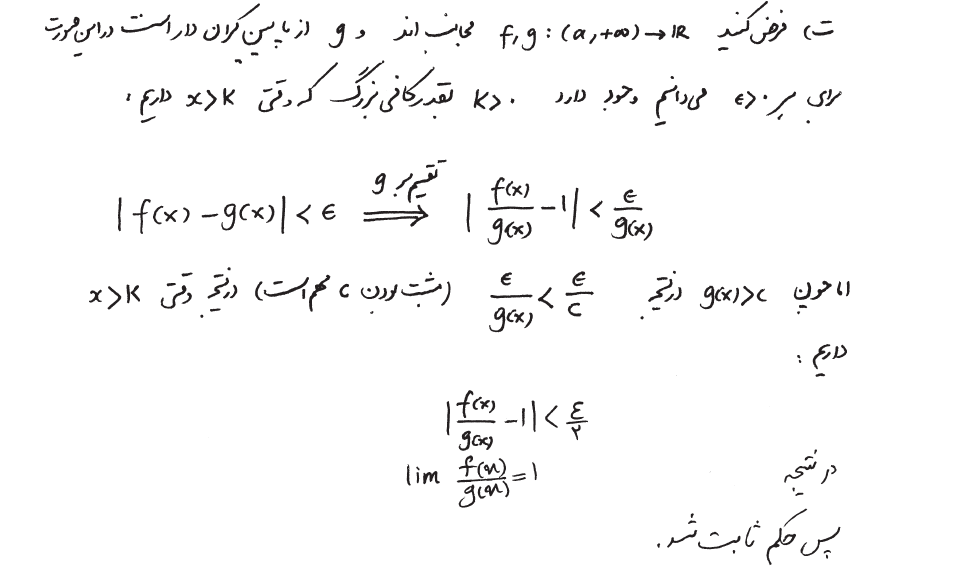 ت) فرض کنید f,g : (a,+∞) → IR مجانب اند و g از پایین کران دار است در این صورت
برای هر ε>۰ می‌دانیم وجود دارد K>۰ بقدر کافی بزرگ که وقتی x>K داریم:
|f(x) - g(x)| < ε ⟹ تقسیم بر g |f(x)/g(x) - 1| < ε/g(x)
اما چون g(x)>c در نتیجه ε/g(x) < ε/c (مثبت بودن c مهم است) در نتیجه وقتی x>K
داریم:
|f(x)/g(x) - 1| < ε/۲
در نتیجه lim f(x)/g(x) = 1
پس حکم ثابت شد.